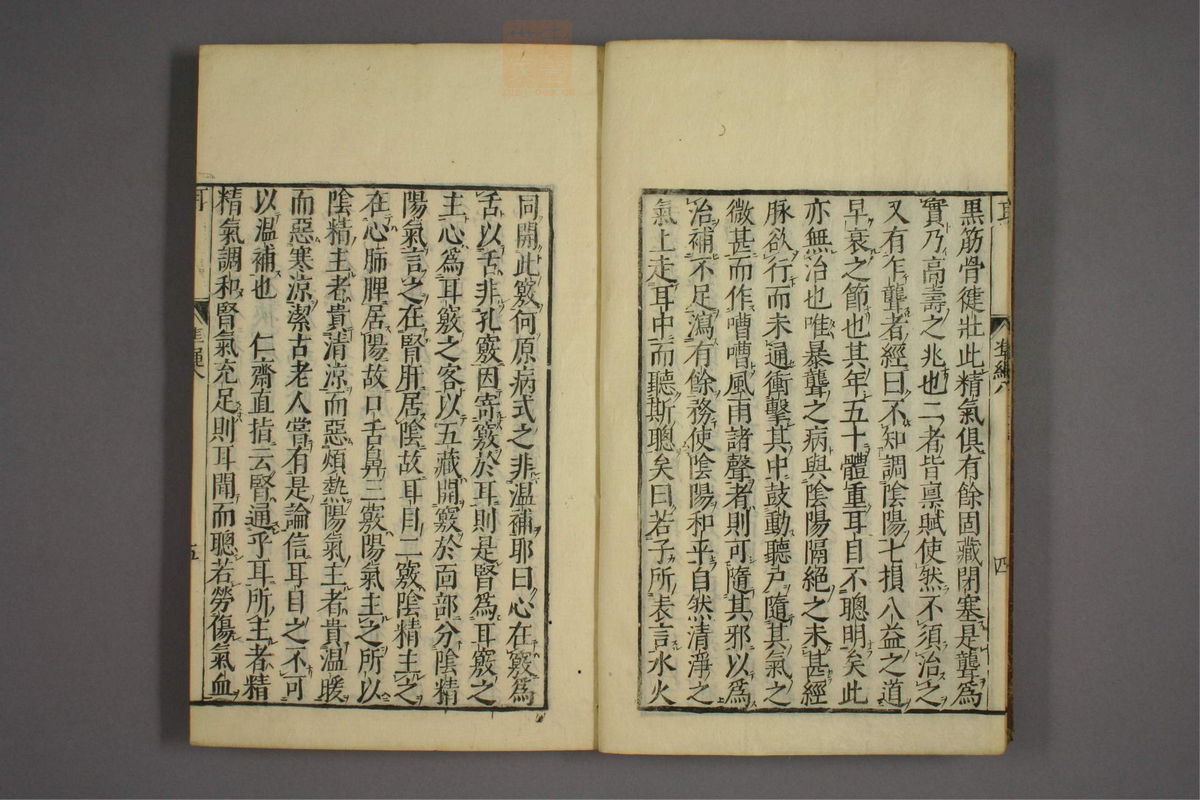 黒筋骨健壯此精氣俱有餘固藏閉塞是聾爲
實乃高壽之兆也二者皆禀賦使然不須治之
又有乍聾者經曰不知調陰陽七損八益之道
早衰之節也其年五十體重耳目不聰明矣此
亦無治也唯暴聾之病與陰陽隔絕之未甚經
脉欲行而未通衝擊其中鼓動聽户隨其氣之
微甚而作嘈嘈風雨諸聲者則可隨其邪以爲
治補不足瀉有餘務使陰陽和平自然清淨之
氣上走耳中而聽斯聰矣曰若子所表言水火
四
同開此竅何原病式之非温補耶曰心在竅爲
舌以舌非孔竅因寄竅於耳則是腎爲耳竅之
主心爲耳竅之客以五藏開竅於面部分陰精
陽氣言之在腎肝居陰故耳目二竅陰精主之
在心肺脾居陽故口舌鼻三竅陽氣主之所以
陰精主者貴清涼而惡煩熱陽氣主者貴温暖
而惡寒涼潔古老人嘗有是論信耳目之不可
以温補也　仁齋直指云腎通乎耳所主者精
精氣調和腎氣充足則耳聞而聰若勞傷氣血
耳
五